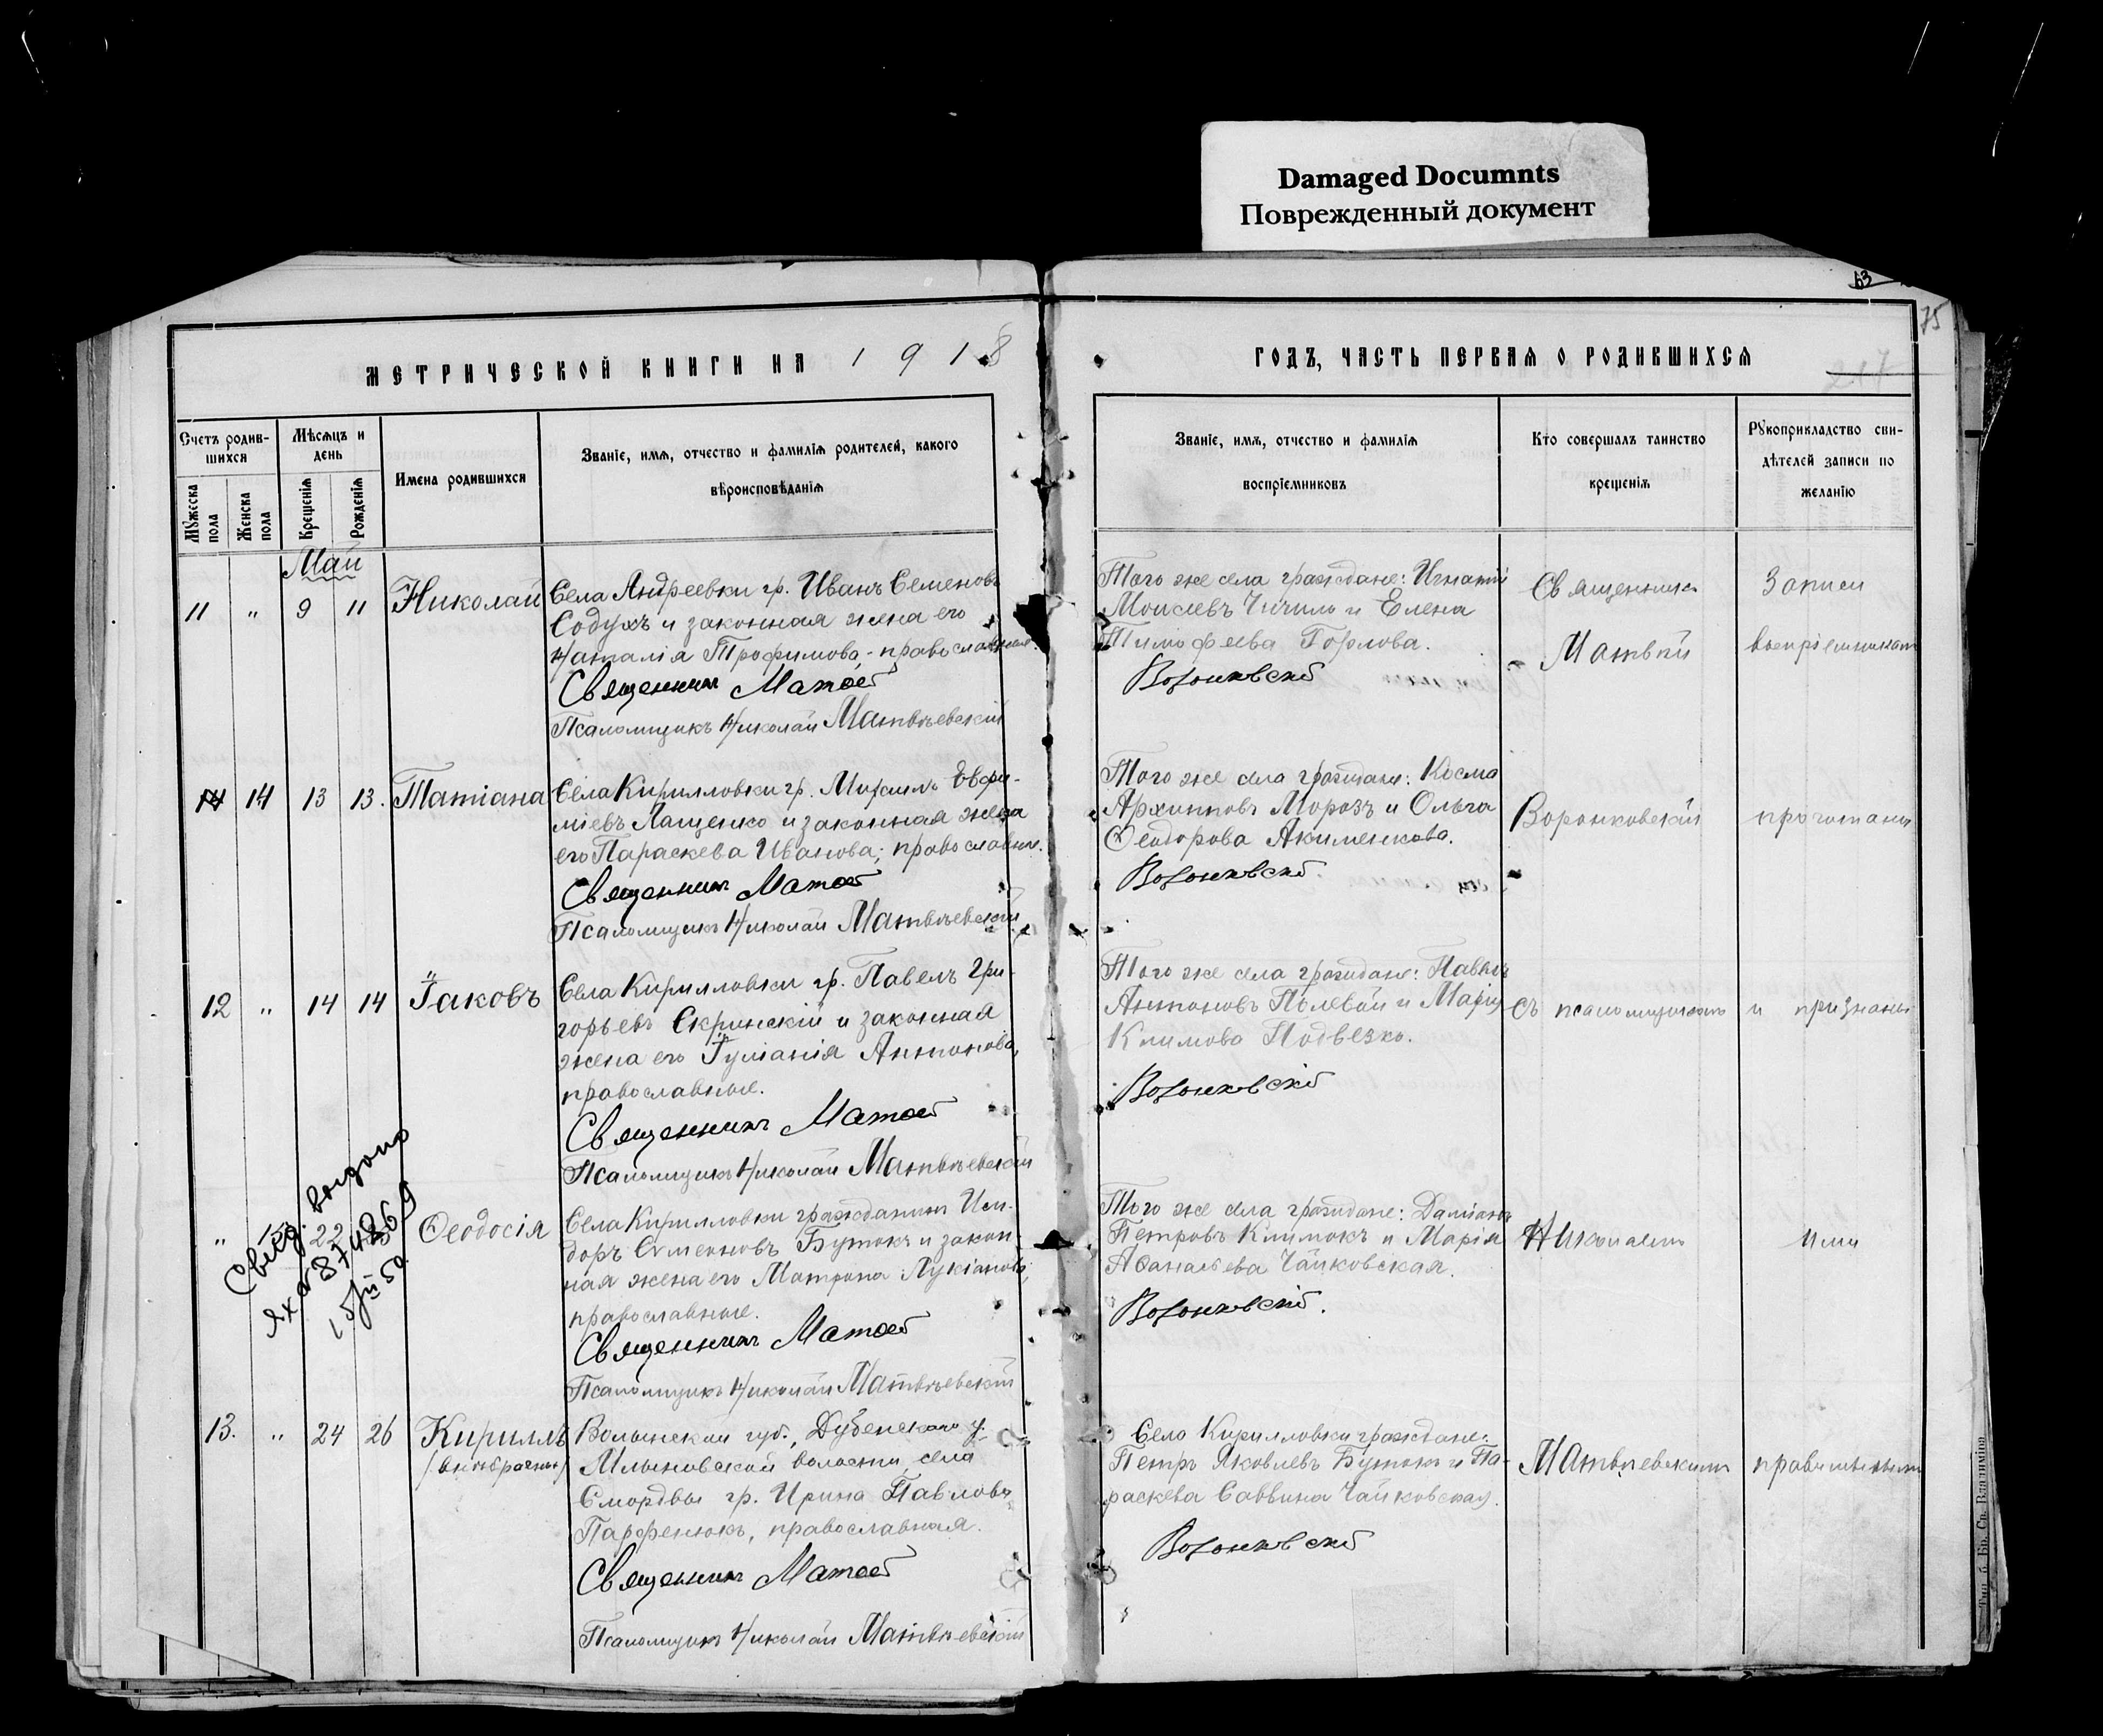 Damaged Documnts
Поврежденный документ
63
75
217
МЕТРИЧЕСКОЙ КНИГИ НА 1918
ГОДЪ, ЧАСТЬ ПЕРВАЯ О РОДИВШИХСЯ
Счетъ родив-
шихся
Мужеска пола
Женска пола
Мѣсяцъ и
день
Крещенія
Рожденія
Имена родившихся
Званіе, имя, отчество и фамилія родителей, какого
вѣроисповѣданія
Званіе, имя, отчество и фамилія
воспріемниковъ
Кто совершалъ таинство
крещенія
Рукоприкладство сви-
дѣтелей записи по
желанію
Май
11 " 9 11 Николай
Села Андреевки гр. Иванъ Семеновъ
Содухъ и законная жена его
Наталія Трофимова,- православные.
Священникъ Матѳей
Псаломщикъ Николай Матвѣевскій
Того же села граждане: Игнатій
Моисеевъ Чичило и Елена
Тимофеева Горлова.
Воронковскій
Священникъ
Матвѣй
Записи
воспріемникам
14 13 13. Татіана
Села Кирилловки гр. Михаилъ Евфи-
міевъ Лащенко и законная жена
его Параскева Иванова; православные.
Священникъ Матѳей
Псаломщикъ Николай Матвѣевскій
Того же села граждане: Косма
Архиповъ Морозъ и Ольга
Ѳеодорова Акименкова.
Воронковскій
Воронковскій
прочитаны
12 " 14 14 Іаковъ
Села Кирилловки гр. Павелъ Гри-
горьевъ Скринскій и законная
жена его Іуліанія Антонова,
православные.
Священникъ Матѳей
Псаломщикъ Николай Матвѣевскій
Того же села граждане: Павелъ
Антоновъ Полевой и Марія
Климова Подвезко.
Воронковскій
съ псаломщикомъ
и признаны
Свид. выдано
ЯХА № 874869
" 22 Ѳеодосія
Села Кирилловки гражданинъ Иси-
доръ Семеновъ Бутокъ и закон-
ная жена его Матрона Лукіанова,
православные.
Священникъ Матѳей
Псаломщикъ Николай Матвѣевскій
Того же села граждане: Даміанъ
Петровъ Климокъ и Марія
Аѳанасьева Чайковская.
Воронковскій.
Николаемъ
ими
13. " 24 26 Кириллъ
(внѣбрачный)
Волынской губ., Дубенскаго у.
Млыновской волости, села
Смордвы гр. Ирина Павлова
Парфенюкъ, православная.
Священникъ Матѳей
Псаломщикъ Николай Матвѣевскій
Села Кирилловки граждане:
Петръ Яковлевъ Бутокъ и Па-
раскева Саввина Чайковская.
Воронковскій
Матвѣевскимъ
правильными
Тип. б. Бр. Св. Владиміра